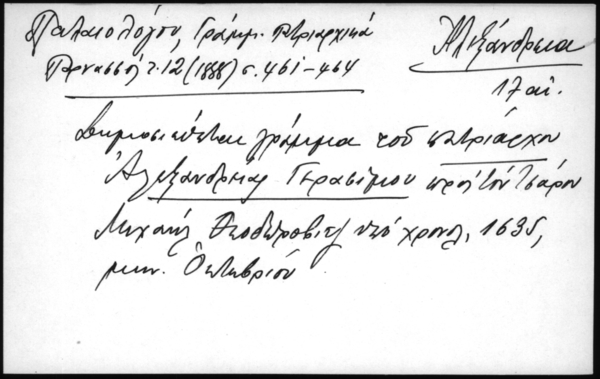 Παλαιολόγου, Γράμμ. Πατριαρχικά
Παρνασσός τ. 12 (1888) σ. 461-464
Ἀλεξάνδρεια
17 αἰ.
Δημοσιεύεται γράμμα τοῦ πατριάρχου
Ἀλεξανδρείας Γερασίμου πρὸς τὸν Τσάρον
Μιχαὴλ Θεοδώροβιτς ὑπὸ χρονολ. 1635,
μην. Ὀκτωβρίου